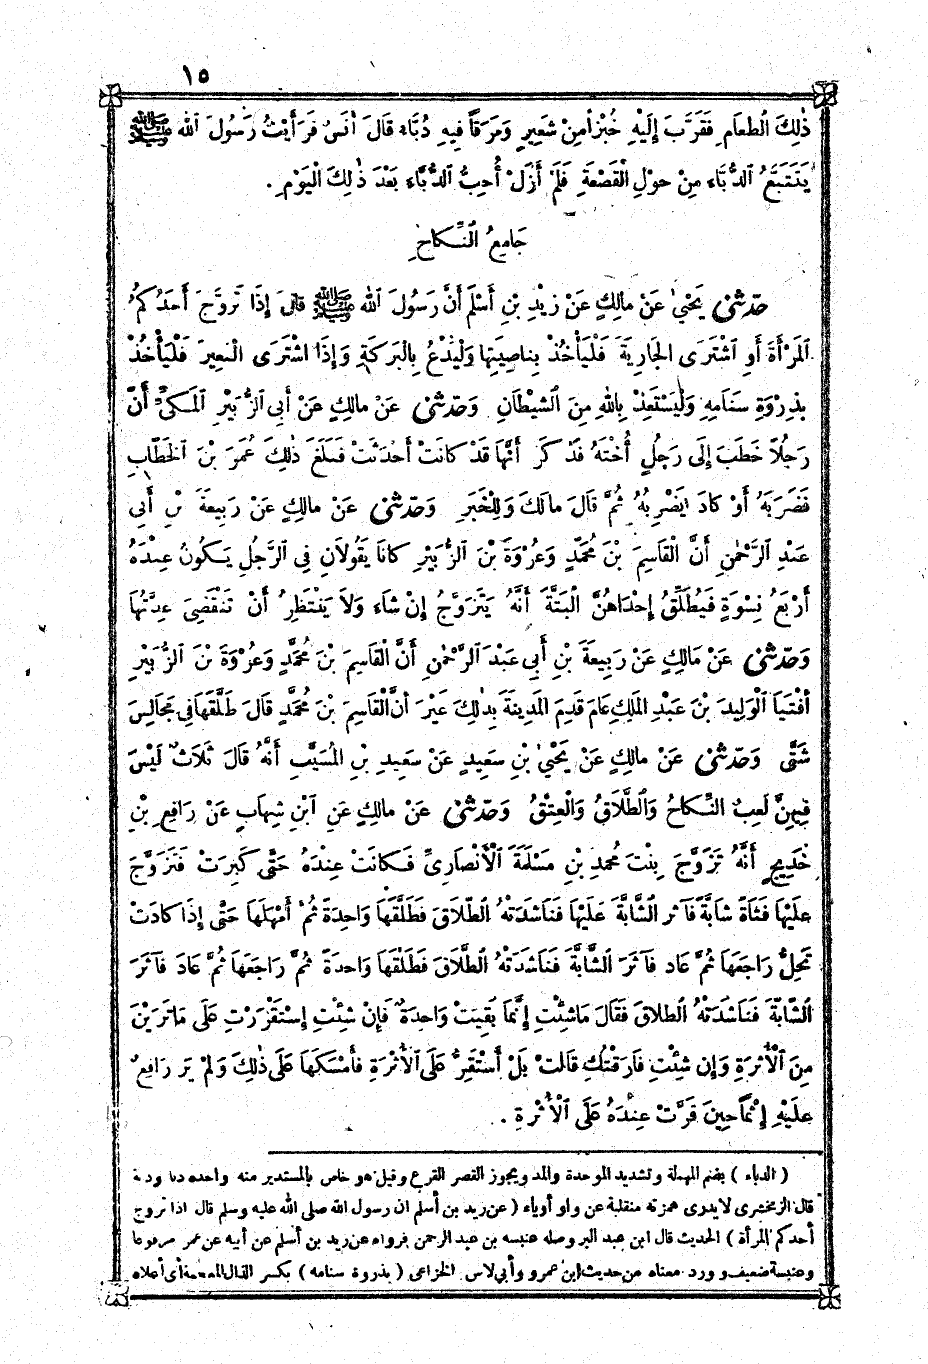 ١٥
ذٰلِكَ الْطعَامِ فَقَرَّبَ إِلَيْهِ خُبْزاً مِنْ شَعِيرٍ وَمَرَقاً فِيهِ دُبَّاء قَالَ أَنَسٌ فَرَأَيْتُ رَسُولَ اللهِ ﷺ
يَتَتَبَّعُ الدُّبَّاء مِنْ حوْلِ الْقَصْعَةِ فَلَمْ أَزَلْ أُحِبُّ الدُّبَّاء بَعْدَ ذٰلِكَ الْيَوْمِ .
جَامِعُ النِّكَاحِ
حدّثنى يَحْيىٰ عَنْ مالِكٍ عَنْ زَيْدِ بْنِ أَسْلَمَ أَنَّ رَسُولَ اللهِ ﷺ قالَ إِذَا تَزَوَّجَ أَحَدُكُمُ
الَمرْأَةَ أَوِ اشْتَرَى الجَارِيَةَ فَلْيَأْخُذْ بِناصِيَتِها وَلْيَدْعُ بِالْبَرَكَةِ وَإِذَا اشْتَرَى الْبَعِيرَ فَلْيَأْخُذْ
بِذِرْوَةِ سَنَامِهِ وَلْيَسْتَعِذْ بِاللهِ مِنَ الشَّيْطَانِ وَحدّثنى عَنْ مالِكٍ عَنْ أَبِى الزُّبَيْرِ الَمكِىِّ أَنَّ
رَجُلاً خَطَبَ إِلَى رَجُلٍ أُخْتَهُ فَذَكَرَ أَنَّها قَدْ كانَتْ أَحْدَثَتْ فَبَلَغَ ذٰلِكَ عُمَرَ بْنَ الخَطَّابِ
فَضَرَبَهُ أَوْ كادَ يَضْرِبُهُ ثُمَّ قَالَ مالَكَ وَلِلْخَبَرِ وَحدّثنى عَنْ مالِكٍ عَنْ رَبِيعَةَ بْنِ أَبِى
عَبْدِ الرَّحْمٰنِ أَنَّ الْقَاسِمَ بْنَ مُحَمَّدٍ وَعُرْوَةَ بْنَ الزُّبَيْرِ كانَا يَقُولاَنِ فِى الرَّجُلِ يَكُونُ عِنْدَهُ
أَرْبَعُ نِسْوَةٍ فَيُطَلِّقُ إِحْدَاهُنَّ الْبَتَّةَ أَنَّهُ يَتَزَوَّجُ إِنْ شَاء وَلاَ يَنْتَظِرُ أَنْ تَنْقَضِىَ عِدَّتُهَا
وَحدّثنى عَنْ مَالِكٍ عَنْ رَبِيعَةَ بْنِ أَبِى عَبْدِ الرَّحْمٰنِ أَنَّ الْقَاسِمَ بْنَ مُحَمَّدٍ وَعُرْوَةَ بْنَ الزُّبَيْرِ
أفْتَيَا الْوَلِيدَ بْنَ عَبْدِ الَملِكِ عَامَ قَدِمَ الَمدِينَةَ بِذٰلِكَ غَيْرَ أنَّ الْقَاسِمَ بْنَ مُحَمَّدٍ قَالَ طَلَّقَهَا فِى مَجَالِسَ
شَتَّى وَحدّثنى عَنْ مالِكٍ عَنْ يَحْيىٰ بْنِ سَعِيدٍ عَنْ سَعِيدِ بْنِ الُمسَيَّبِ أَنَّهُ قَالَ ثَلاَثٌ لَيْسَ
فِيهِنَّ لَعِبٌ النِّكَاحُ وَالطَّلاَقُ وَالْعِتْقُ وَحدّثنى عَنْ مالِكٍ عَنِ ابْنِ شِهَابٍ عَنْ رَافِعِ بْنِ
خَدِيجٍ أَنَّهُ تَزَوَّجَ بِنْتَ مُحمدِ بْنِ مَسْلَمَةَ الْأَنْصَارِىِّ فَكَانَتْ عِنْدَهُ حَتَّى كَبِرَتْ فَتَزَوَّجَ
عَلَيْهَا فَتَاةً شَابَّةً فَآثَرَ الشَّابَّةَ عَلَيْهَا فَنَاشَدَتْهُ الطَّلاَقَ فَطَلَّقَهَا وَاحِدَةً ثُمَّ أَمْهَلَهَا حَتَّى إِذَا كادَتْ
تَحِلُّ رَاجَعَهَا ثُمَّ عَاد فَآثَرَ الشَّابَّةَ فَنَاشَدَتْهُ الطَّلاَقَ فَطَلَّقَهَا وَاحِدَةً ثُمَّ رَاجَعَهَا ثُمَّ عَادَ فَآثَرَ
الشَّابَّةَ فَنَاشَدَتْهُ الطلاَقَ فَقَالَ مَاشِئْتِ إِنَّمَا بَقِيَتْ وَاحِدَةٌ فَإِنْ شِئْتِ إِسْتَقْرَرْتِ عَلَى مَاتَرَيْنَ
مِنَ الْأُثْرَةِ وَإِن شِئْتِ فَارَقْتُكِ قَالتْ بَلْ أَسْتَقِرُّ عَلَى الْأُثْرَةِ فأَمْسَكَهَا عَلَى ذٰلِكَ وَلَمْ يَرَ رَافِعٌ
عَلَيْهِ إِثْمًا حِينَ قَرَّتْ عِنْدَهُ عَلَى الْأُثْرَةِ .
( الدباء ) بضم المهملة وتشديد الموحدة والمد ويجوز القصر القرع وقيل هو خاص بالمستدير منه واحده
قال الزمخشرى لايدرى همزته منقلبة عن واو أوياء ( عن زيد بن أسلم ان رسول الله صلى الله عليه وسلم قال اذا تزوج
أحدكم المرأة ) الحديث قال ابن عبد البر وصله عنبسة بن عبد الرحمن فرواه عن زيد بن أسلم عن أبيه عن عمر مرفوعا
وعنبسة ضعيف وورد معناه من حديث ابن عمرو وأبى لاس الخزاعى ( بذروة سنامه ) بكسر الذال المعجمة أى أعلاه